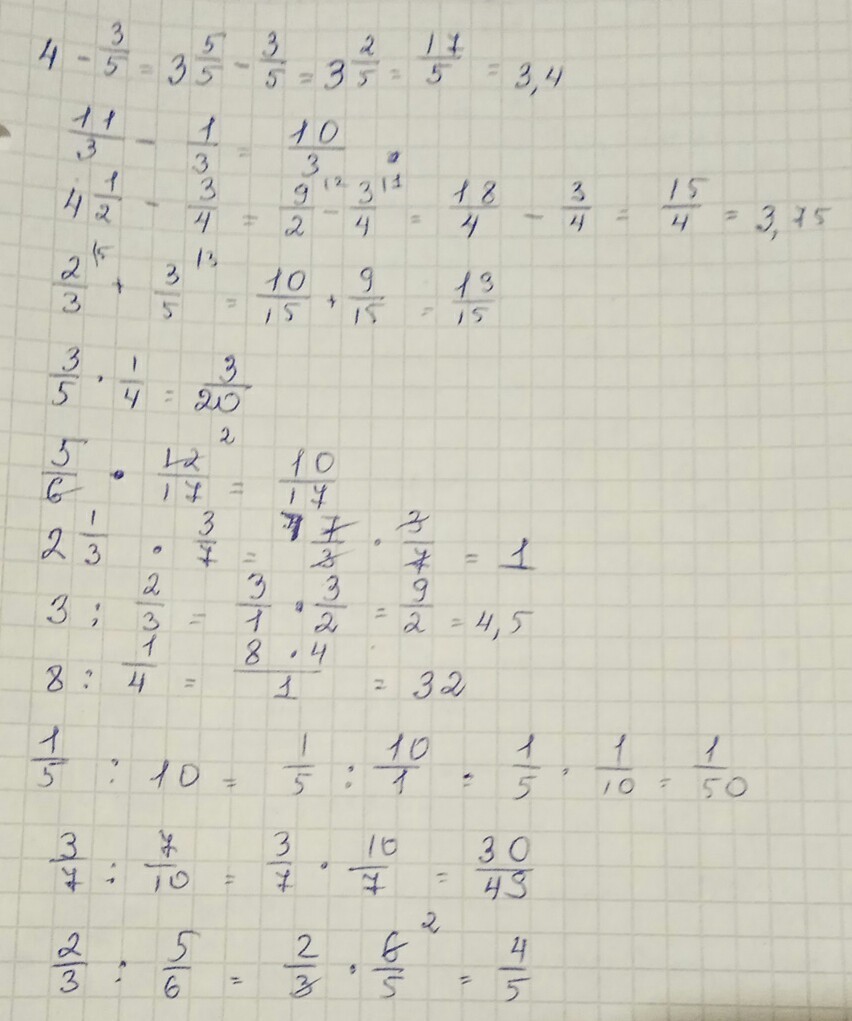 4 - 3/5 = 3 5/5 - 3/5 = 3 2/5 = 17/5 = 3,4
11/3 - 1/3 = 10/3.
4 1/2 - 3/4 = 9/2 |2 - 3/4 |1 = 18/4 - 3/4 = 15/4 = 3,75
2/3 |5 + 3/5 |3 = 10/15 + 9/15 = 19/15
3/5 · 1/4 = 3/20
5/6 · 12/17 2 = 10/17
2 1/3 · 3/7 = 7/3 · 3/7 = 1
3 : 2/3 = 3/1 · 3/2 = 9/2 = 4,5
8 : 1/4 = 8 · 4/1 = 32
1/5 : 10 = 1/5 : 10/1 = 1/5 · 1/10 = 1/50
3/7 : 7/10 = 3/7 · 10/7 = 30/49
2/3 : 5/6 = 2/3 · 6/5 2 = 4/5